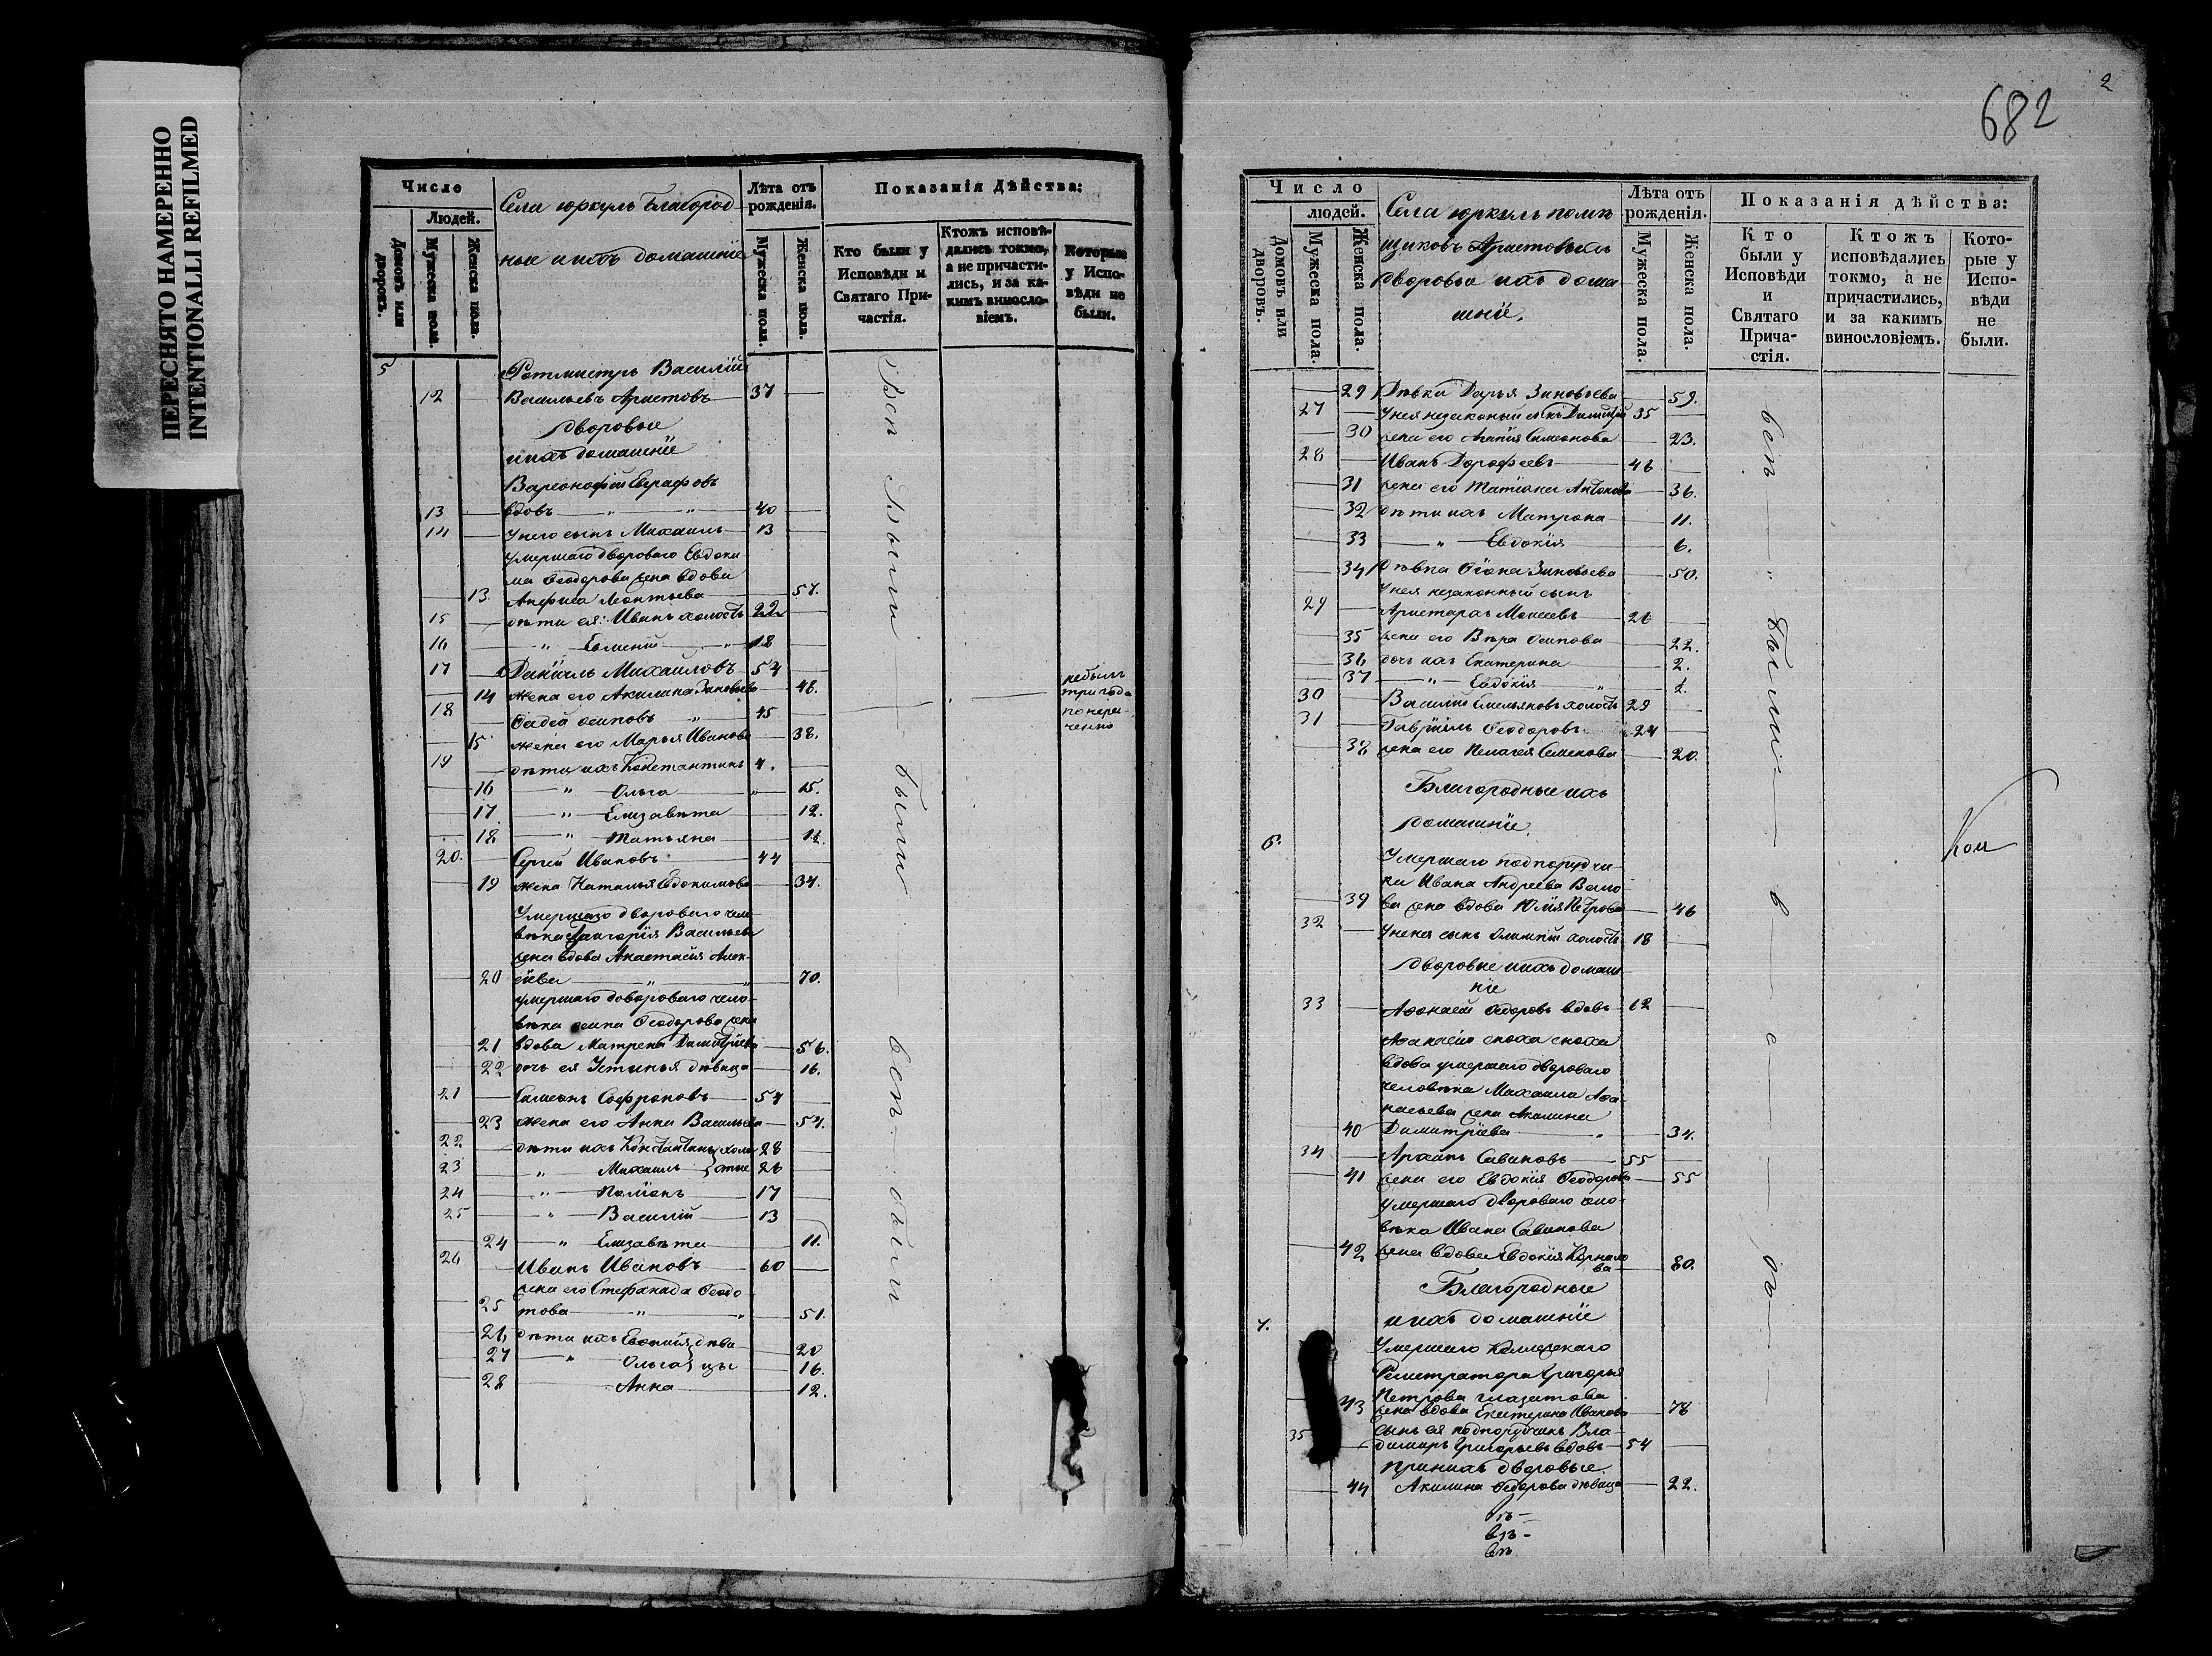 ПЕРЕСНЯТО НАМЕРЕННО
INTENTIONALLI REFILMED
Число
Людей.
Домовъ или дворовъ.
Мужеска пола.
Женска пола.
Села Юркуль Благород
ные и ихъ домашніе
Лѣта отъ рожденія.
Мужеска пола.
Женска пола.
Показанія Дѣйства:
Кто были у Исповѣди и Святаго Причастія.
Ктожъ исповѣ-
дались токмо,
а не причасти-
лись, и за ка-
кимъ виносло-
віемъ.
Которые
у Испо-
вѣди не
были.
5
Ротмистръ Василій
12 Васильевъ Аристовъ 37
Дворовые
и ихъ домашніе
Варсонофій Евграфовъ
13 вдовъ 40
14 У него сынъ Михаилъ 13
Умершаго двороваго Евдоки
ма Ѳеодорова жена вдова
13 Анфиса Леонтьева 57.
15 дѣти ея: Иванъ холостъ 22
16 " Евмений " 18
17 Даніилъ Михаиловъ 54
14 жена его Акилина Зиновьева 48.
18 Ѳадей Осиповъ 45
15 жена его Марья Иванова 38.
19 дѣти ихъ Константинъ 4.
16 " Ольга 15.
17 " Елизавета 12.
18 " Татьяна 11.
20. Сергей Ивановъ 44
19 жена Наталья Евдокимова 34.
Умершаго двороваго чело-
вѣка Григорія Васильева
жена вдова Анастасія Алек-
20 сіева " 70.
умершаго двороваго чело-
вѣка Осипа Ѳеодорова жена
21 вдова Матрена Димитріева 56.
22 дочь ея Устинья дѣвица 16.
21 Симеонъ Софроновъ 54
23 жена его Анна Васильева 54.
22 дѣти ихъ Константинъ холо 28
23 " Михаилъ стые 26
24 " 17
25 " Василій 13
24 " Елизавета 11.
26 Иванъ Ивановъ 60
жена его Стефанида Ѳеодо
25 това " 51.
26 дѣти ихъ Евѳимія дѣви 20
27 " Ольга цы 16.
28 Анна 12.
Всѣ были
были
всѣ были
небылъ
три года
по нера-
ченію
682
2
Число
людей.
Домовъ или дворовъ.
Мужеска пола.
Женска пола.
Села Юркуль помѣ
щиковъ Аристовыхъ
дворовые ихъ дома
шніе.
Лѣта отъ рожденія.
Мужеска пола.
Женска пола.
Показанія дѣйства:
Кто
были у
Исповѣди
и
Святаго
Прича-
стія.
Ктожъ
исповѣдались
токмо, а не
причастились,
и за какимъ
винословіемъ.
Кото-
рые у
Испо-
вѣди
не
были.
29 Дѣвка Дарья Зиновьева 59.
27 У нея незаконый сынъ Димитрій 35
30 жена его Агапія Симеонова 23.
28 Иванъ Дорофеевъ 46
31 жена его Татіана Антонова 36.
32 дѣти ихъ Матрона 11.
33 " Евдокія 6.
34 Дѣвка Ѳіона Зиновьева 50.
У нея незаконный сынъ
29 Аристархъ Моисеевъ 26
35 жена его Вѣра Осипова 22.
36 дочь ихъ Екатерина 2.
37 " Евдокія " 1.
30 Василій Емельяновъ холостъ 29
31 Гавріилъ Ѳеодоровъ 24
38 жена его Пелагея Семенова 20.
Благородные ихъ
домашніе.
6.
Умершаго подпоручи-
ка Ивана Андреева
39 жена вдова Юлія Петрова 46
32 У нея сынъ Олимпій холостъ 18
Дворовые и ихъ домаш-
ніе
33 Аѳонасій Ѳедоровъ вдовъ 62
Аѳанасія сноха сноха
вдова умершаго двороваго
человѣка Михаила Аѳа-
насьева жена Акилина
40 Димитріева " 34.
34 Архипъ Савиновъ 55
41 жена его Евдокія Ѳеодорова 55
Умершаго двороваго чело-
вѣка Ивана Савинова
42 жена вдова Евдокія Корнило
ва 80.
Благородные
7. и ихъ домашніе
Умершаго Коллежскаго
Регистратора Григорья
Петрова Глазатова
43 жена вдова Екатерина Иванова 78
35 сынъ ея подпоручикъ Вла-
димиръ Григорьевъ вдовъ 54
при нихъ дворовые
44 Акилина Ѳедорова дѣвица 22.
всѣ " были